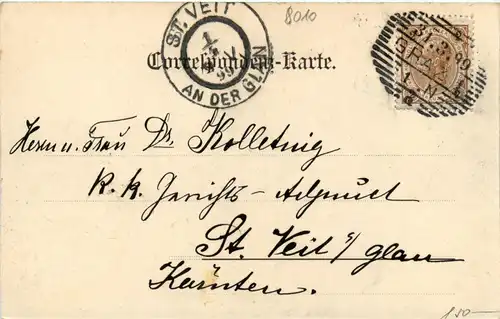 8010
ST. VEIT
AN DER GLAN
99
31.3.99
GRAZ
Correspondenz-Karte.
Herrn u. Frau Dr. Kolletnig
k. k. Gerichts-Adjunct
St. Veit a/ glan
Kärnten.
150-